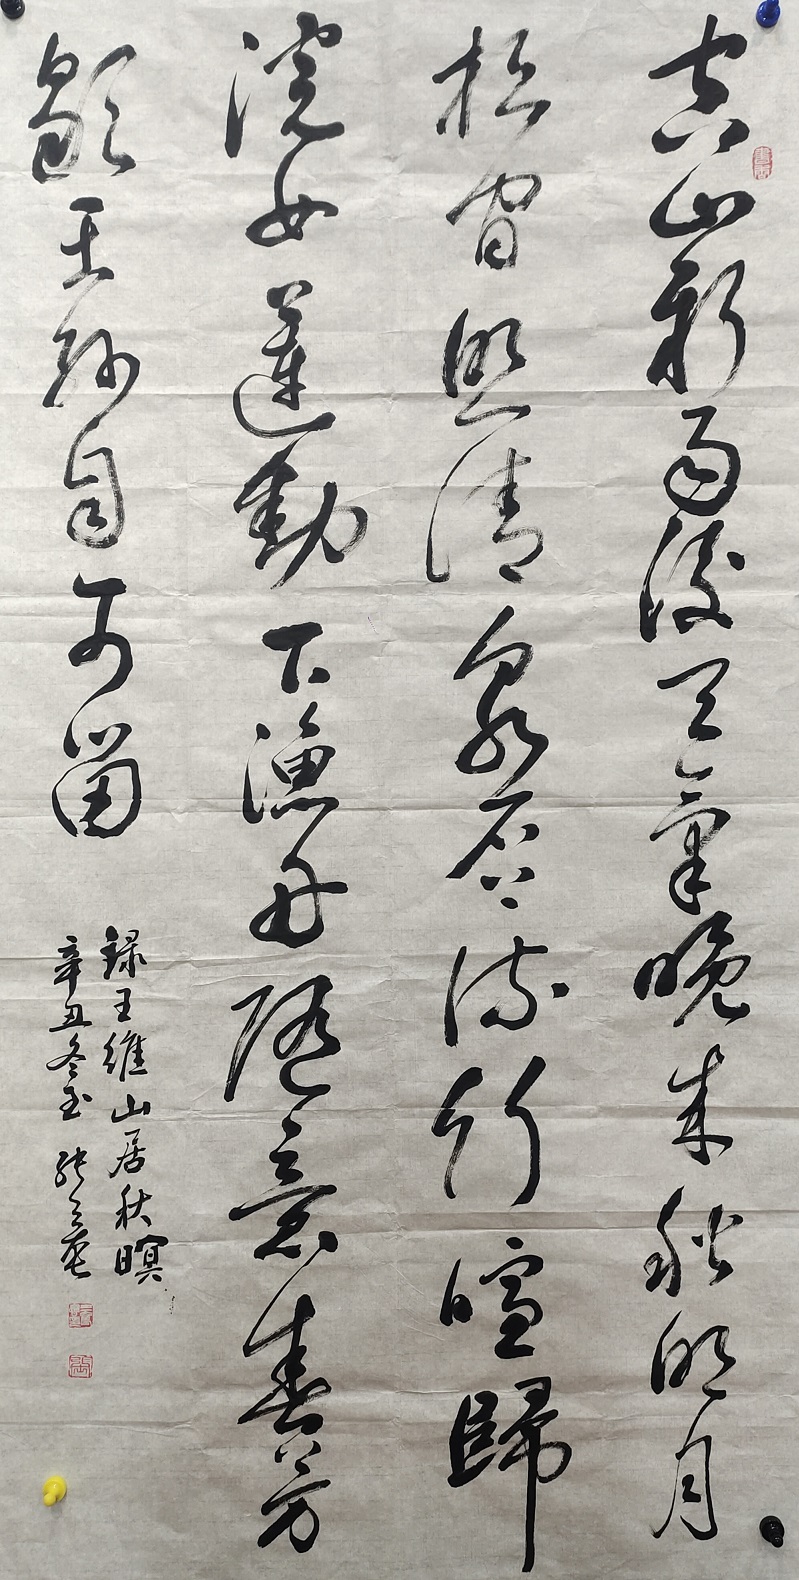 空山新雨後天氣晚来秋明月
松间照清泉石流竹喧歸
浣女蓮動下漁舟随意春芳
歇王孫自可留
録王維山居秋暝
辛丑冬玉